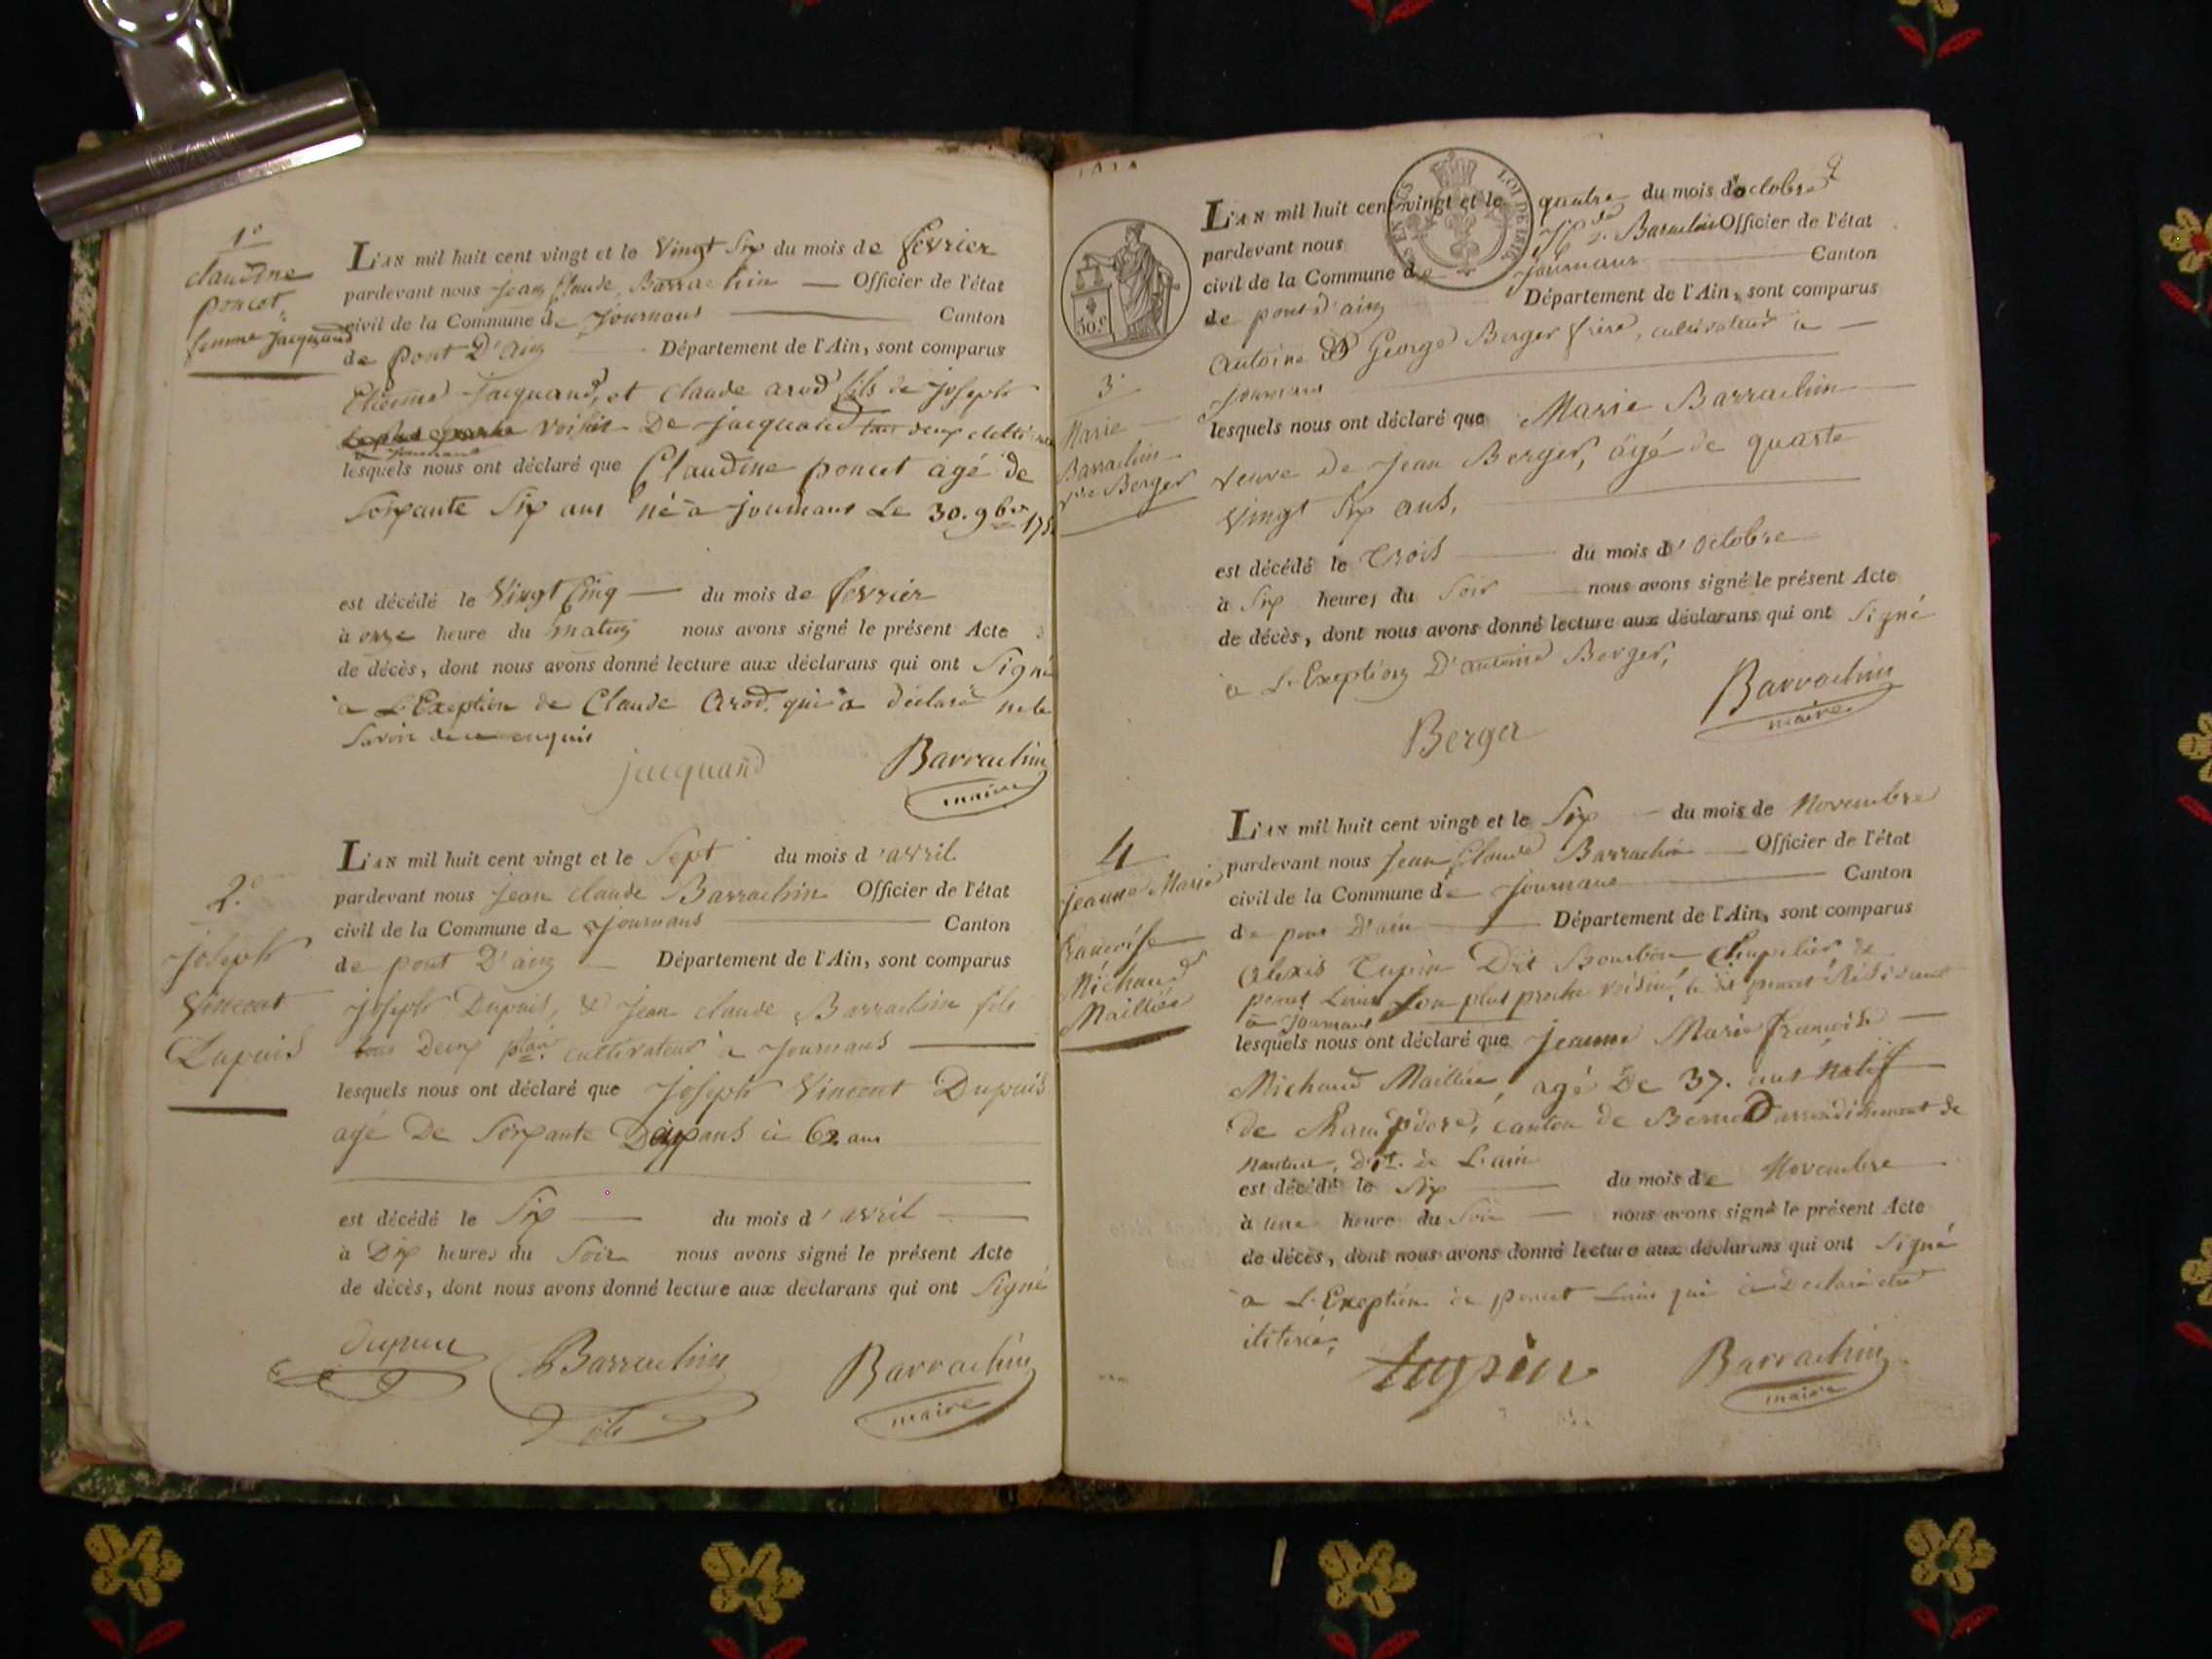 1º
claudine
poncet
femme jacquand
L'AN mil huit cent vingt et le Vingt Six du mois de fevrier
pardevant nous jean Claude Barrachin Officier de l'état
civil de la Commune de Journans Canton
de pont D'ain Département de l'Ain, sont comparus
Etienne jacquand, et Claude arod fils de joseph
voisin De jacquand tous deux
lesquels nous ont déclaré que Claudine poncet agé de
Soixante Six ans né a journans Le 30. 9bre
est décédé le Vingt Cinq du mois de fevrier
à onze heure du matin nous avons signé le présent Acte
de décès, dont nous avons donné lecture aux déclarans qui ont Signé
a L'Exeption de Claude Arod, qui a déclaré ne le
Savoir de ce enquis
jacquand
Barrachin
maire
2º
joseph
Vincent
Dupuis
L'AN mil huit cent vingt et le Sept du mois d'avril
pardevant nous jean claude Barrachin Officier de l'état
civil de la Commune de Journans Canton
de pont D'ain Département de l'Ain, sont comparus
joseph Dupuis, & jean claude Barrachin fils
tous Deux cultivateur a Journans
lesquels nous ont déclaré que joseph Vincent Dupuis
agé De Soixante Deux ans ci 62 ans
est décédé le Six du mois d'avril
à Dix heures du Soir nous avons signé le présent Acte
de décès, dont nous avons donné lecture aux déclarans qui ont Signé
dupuis
Barrachin
fils
Barrachin
maire
LOI DE 1816
L'AN mil huit cent vingt et le quatre du mois d'octobre
pardevant nous Barrachin Officier de l'état
civil de la Commune de Journans Canton
de pont d'ain Département de l'Ain, sont comparus
50.c
Antoine & George Berger frere, cultivateur a
Journans
3º
Marie
Barrachin
Vve Berger
lesquels nous ont déclaré que Marie Barrachin
veuve de Jean Berger, âgé de quatre
vingt Six ans,
est décédé le Trois du mois d'octobre
à Six heures du Soir nous avons signé le présent Acte
de décès, dont nous avons donné lecture aux déclarans qui ont Signé
a L'Exeption D'antoine Berger,
Berger
Barrachin
maire
4
jeanne Marie
francoise
Michaud
Mailliée
L'AN mil huit cent vingt et le Six du mois de Novembre
pardevant nous Jean Claude Barrachin Officier de l'état
civil de la Commune de Journans Canton
de pont D'ain Département de l'Ain, sont comparus
Alexis Tupin Dit Bourbon Chapelier, &
poncet Louis Son plus proche voisin, Résidant
a Journans
lesquels nous ont déclaré que jeanne Marie francoise
Michaud Mailliée, agé De 37. ans natif
de canton de arrondissement de
Nantua, Dt. de L'ain
est décédé le Six du mois de Novembre
à une heure du Soir nous avons signé le présent Acte
de décès, dont nous avons donné lecture aux déclarans qui ont Signé
a L'Exeption de poncet Louis qui a Declaré etre
iliteré,
tupin
Barrachin
maire